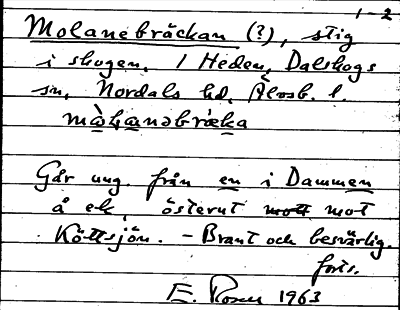 1-2
Molanebräckan (?), stig
i skogen, / Heden, Dalskogs
sn, Nordals hd, Älvsb. l.
Går ung. från en i Dammen
å ek, österut mot
Köttsjön. - Brant och besvärlig.
forts.
E. Rosen 1963